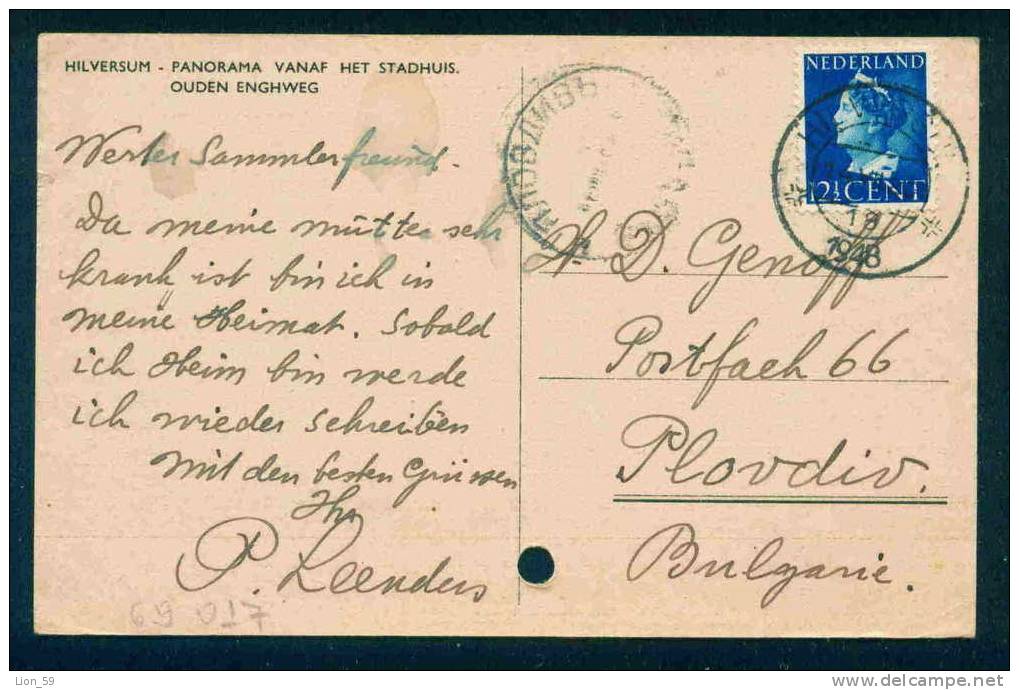 HILVERSUM - PANORAMA VANAF HET STADHUIS.
OUDEN ENGHWEG
Werter Sammlerfreund.
Da meine mutter sehr
krank ist bin ich in
meine Heimat. Sobald
ich Heim bin werde
ich wieder schreiben
mit den besten Grüssen
Ihr
P. Leenders
69 017
ПЛОВДИВЪ
NEDERLAND
12½ CENT
1948
D. Genoff
Postfach 66
Plovdiv.
Bulgarie.
Lion_59
www.delcampe.net